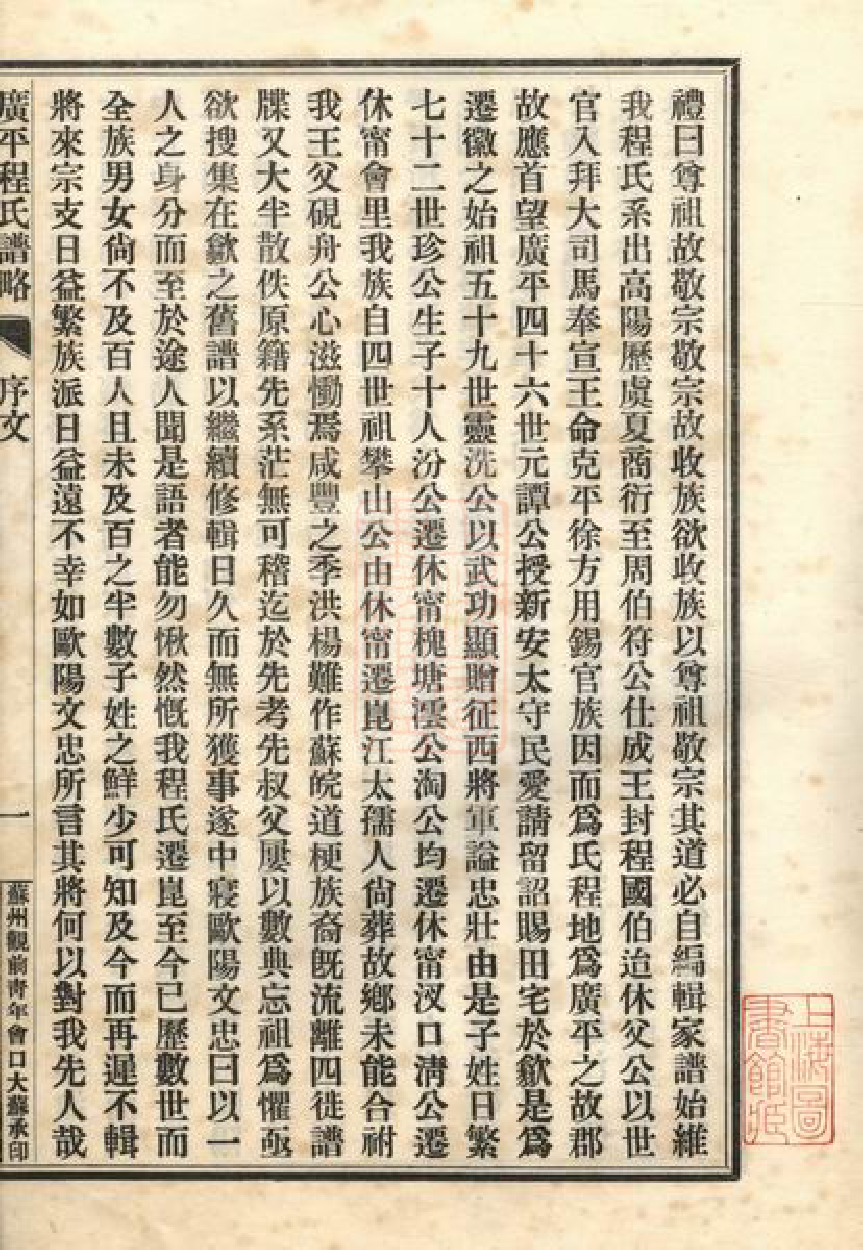 禮曰尊祖故敬宗敬宗故收族欲收族以尊祖敬宗其道必自編輯家譜始維
我程氏系出高陽歷虞夏商衍至周伯符公仕成王封程國伯迨休父公以世
官入拜大司馬奉宣王命克平徐方用錫官族因而爲氏程地爲廣平之故郡
故應首望廣平四十六世元譚公授新安太守民愛請留詔賜田宅於歙是爲
遷徽之始祖五十九世靈洗公以武功顯贈征西將軍諡忠壯由是子姓日繁
七十二世珍公生子十人汾公遷休甯槐塘澐公淘公均遷休甯汊口淸公遷
休甯會里我族自四世祖攀山公由休甯遷崑江太孺人尙葬故鄉未能合祔
我王父硯舟公心滋慟焉咸豐之季洪楊難作蘇皖道梗族裔旣流離四徙譜
牒又大半散佚原籍先系茫無可稽迄於先考先叔父屢以數典忘祖爲懼亟
欲搜集在歙之舊譜以繼續修輯日久而無所獲事遂中寢歐陽文忠曰以一
人之身分而至於途人聞是語者能勿愀然慨我程氏遷崑至今已歷數世而
全族男女尙不及百人且未及百之半數子姓之鮮少可知及今而再遲不輯
將來宗支日益繁族派日益遠不幸如歐陽文忠所言其將何以對我先人哉
廣平程氏譜略 序文 一 蘇州觀前靑年會口大蘇承印
上海圖書館藏